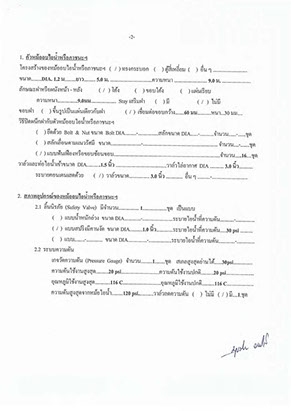 -2-
1. ตัวหม้ออบไอน้ำหรือภาชนะฯ
โครงสร้างของหม้ออบไอน้ำหรือภาชนะฯ ( / ) ทรงกระบอก ( ) ตู้สี่เหลี่ยม ( ) อื่น ๆ
ขนาด DIA. 1.2 ม ยาว 5.0 ม. ความหนา 9.0 ม.
ลักษณะฝาหรือผนังหน้า - หลัง ( / ) โค้ง ( ) ขอบโค้ง ( ) แผ่นเรียบ
ความหนา 9.0มม Stay เสริมฝา ( ) มี ( / ) ไม่มี
ขอบฝา ( ) ขึ้นรูปเป็นแผ่นเดียวกับฝา ( / ) เชื่อมต่อขอบกว้าง 60 มม หนา 30 มม.
( ) ยึดด้วย Bolt & Nut ขนาด Bolt DIA. - สลักขนาด DIA. - จำนวน - ชุด
จำนวน 16 ชุด
DIA. 1.5 นิ้ว DIA. 3.0 นิ้ว
( / ) วาล์วขนาด 3.0 นิ้ว อื่น ๆ -
2.1 ลิ้นนิรภัย (Safety Valve) มีจำนวน 1 ชุด เป็นแบบ
( ) แบบน้ำหนักถ่วง ขนาด DIA. - ระบายไอน้ำที่ความดัน -
( / ) แบบสปริงมีคานงัด ขนาด DIA. 1.0 นิ้ว ระบายไอน้ำที่ความดัน 30 psi
( ) แบบ - ขนาด DIA. - ระบายไอน้ำที่ความดัน -
2.2 ระบบความดัน
เกจวัดความดัน (Pressure Gauge) จำนวน 1 ชุด สเกลสูงสุดอ่านได้ 30psi
ความดันใช้งานสูงสุด 20 psi ความดันใช้งานปกติ 20 psi
อุณหภูมิใช้งานสูงสุด 116 C อุณหภูมิใช้งานปกติ 116 C
ความดันสูงสุดจากหม้อไอน้ำ 120 psi วาล์วลดความดัน ( ) ไม่มี ( / ) มี 1 ชุด